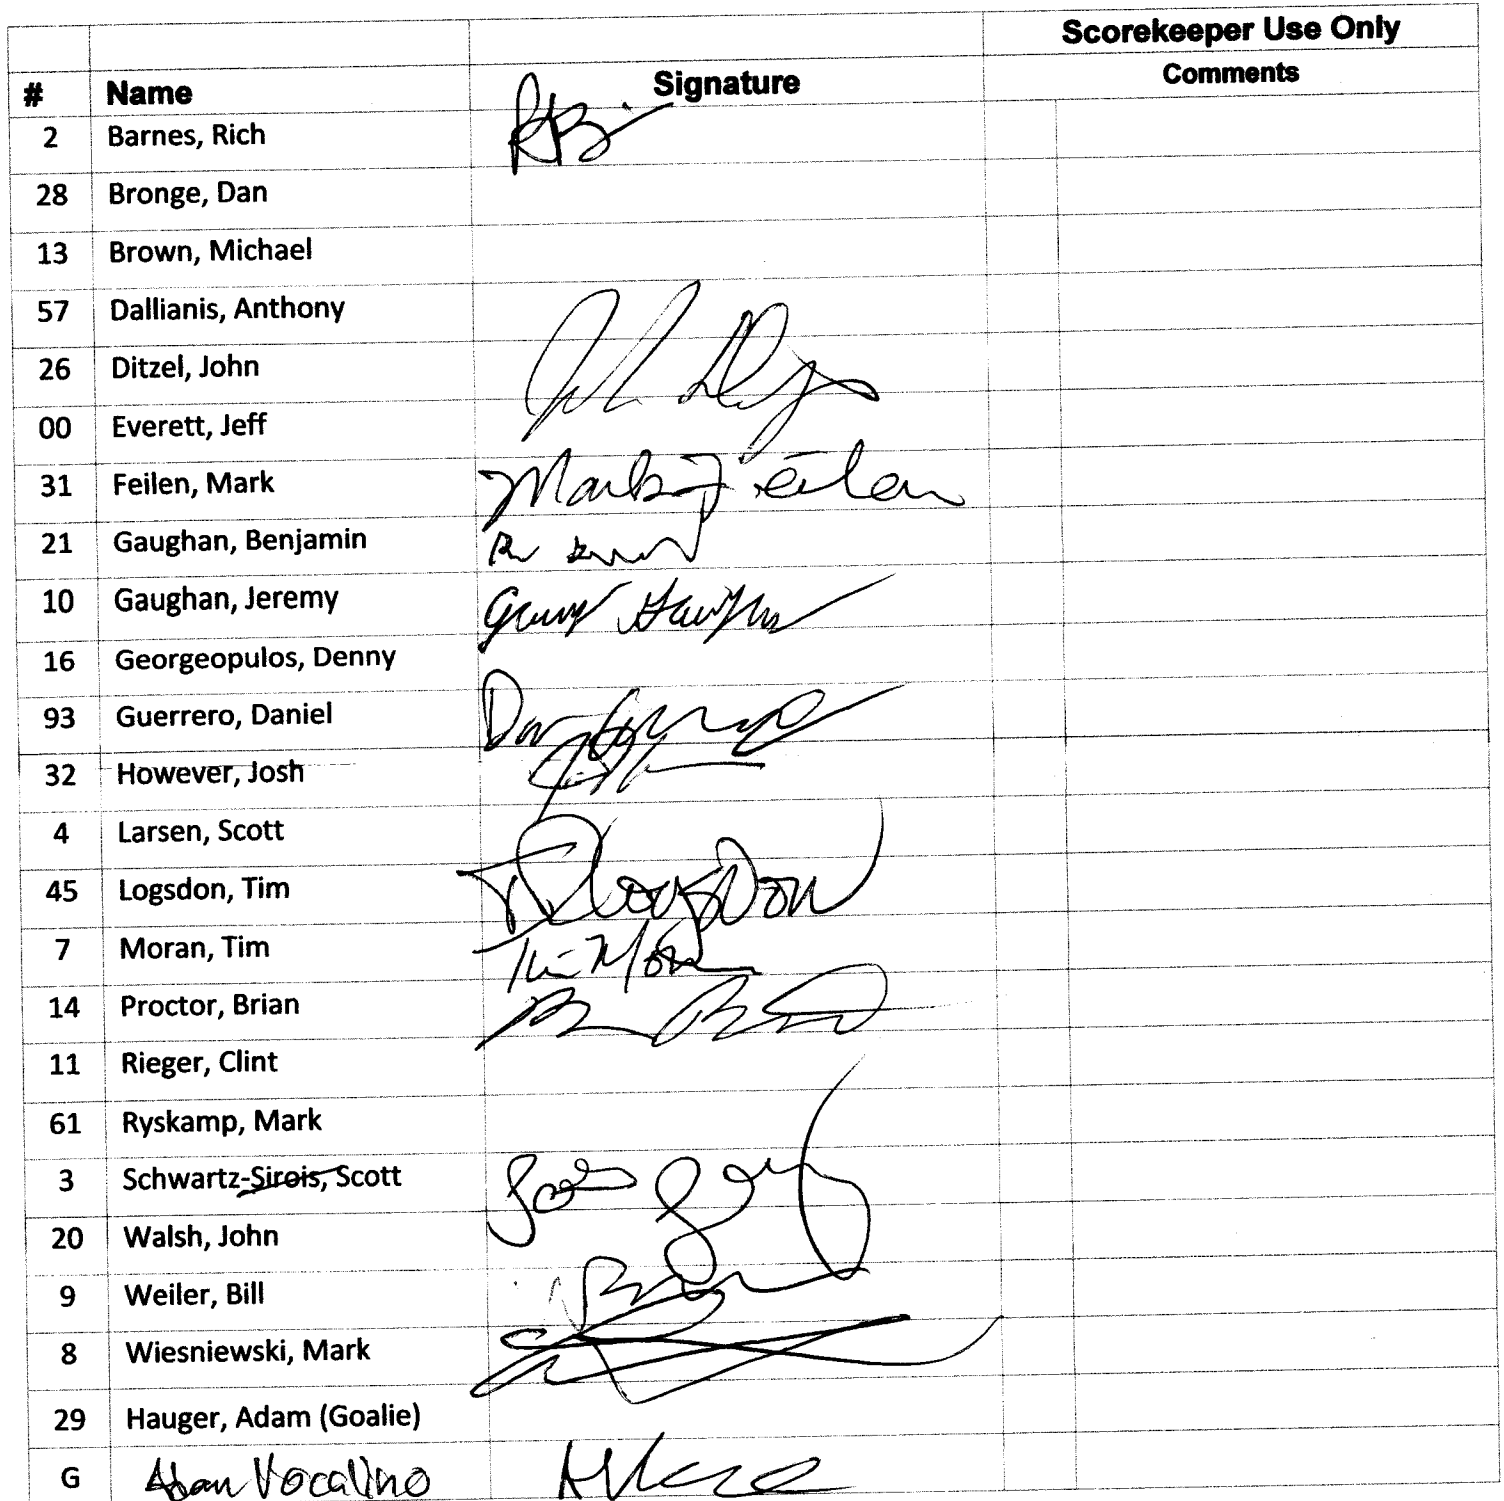 Scorekeeper Use Only
# Name Signature Comments
2 Barnes, Rich
28 Bronge, Dan
13 Brown, Michael
57 Dallianis, Anthony
26 Ditzel, John
00 Everett, Jeff
31 Feilen, Mark Mark Feilen
21 Gaughan, Benjamin
10 Gaughan, Jeremy
16 Georgeopulos, Denny
93 Guerrero, Daniel
32 However, Josh
4 Larsen, Scott
45 Logsdon, Tim Logsdon
7 Moran, Tim Tim Moran
14 Proctor, Brian
11 Rieger, Clint
61 Ryskamp, Mark
3 Schwartz-Sirois, Scott
20 Walsh, John
9 Weiler, Bill
8 Wiesniewski, Mark
29 Hauger, Adam (Goalie)
G Vocalino